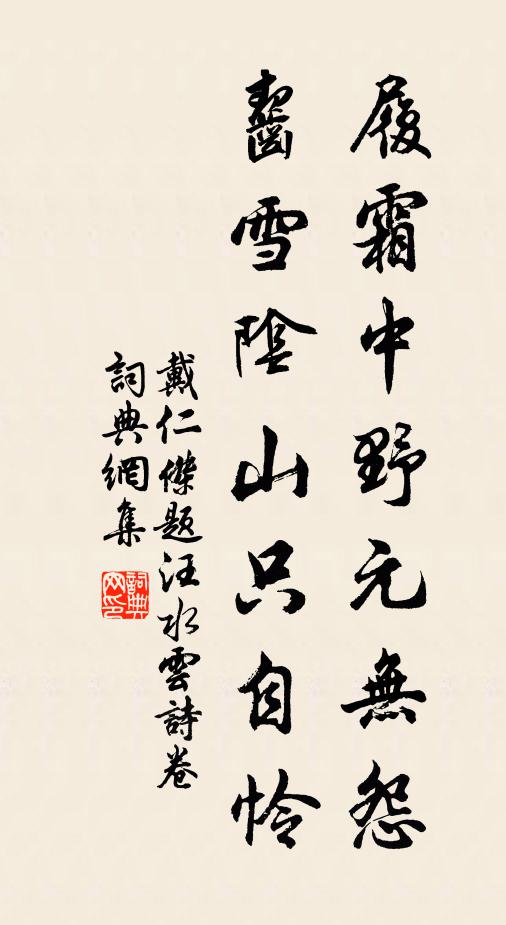 履霜中野元無怨
齧雪陰山只自怜
戴仁傑題汪水雲詩卷
詞典網集
詞典網印